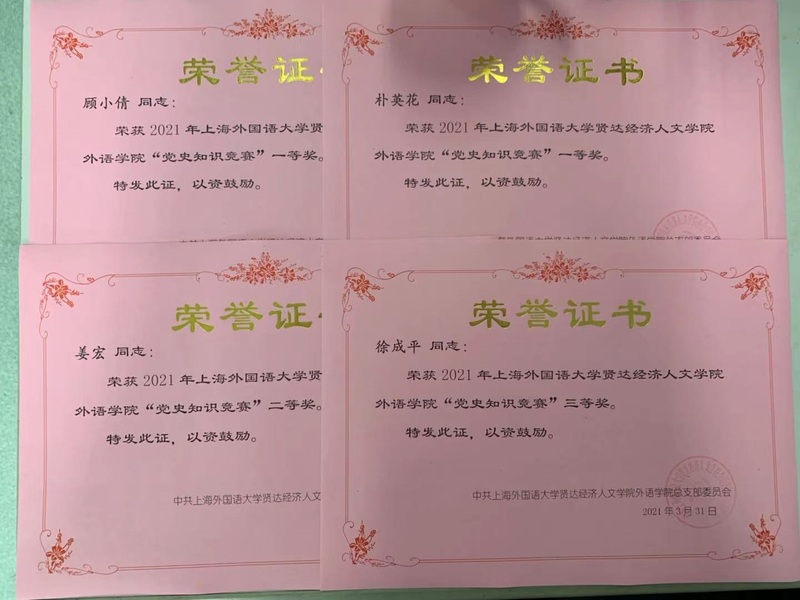 荣誉证
顾小倩 同志：
荣获 2021 年上海外国语大学贤
外语学院“党史知识竞赛”一等奖。
特发此证，以资鼓励。
荣誉证书
朴英花 同志：
荣获 2021 年上海外国语大学贤达经济人文学院
外语学院“党史知识竞赛”一等奖。
特发此证，以资鼓励。
荣誉证
姜宏 同志：
荣获 2021 年上海外国语大学贤
外语学院“党史知识竞赛”二等奖。
特发此证，以资鼓励。
中共上海外国语大学贤达经济人文
荣誉证书
徐成平 同志：
荣获 2021 年上海外国语大学贤达经济人文学院
外语学院“党史知识竞赛”三等奖。
特发此证，以资鼓励。
中共上海外国语大学贤达经济人文学院外语学院总支部委员会
2021 年 3 月 31 日